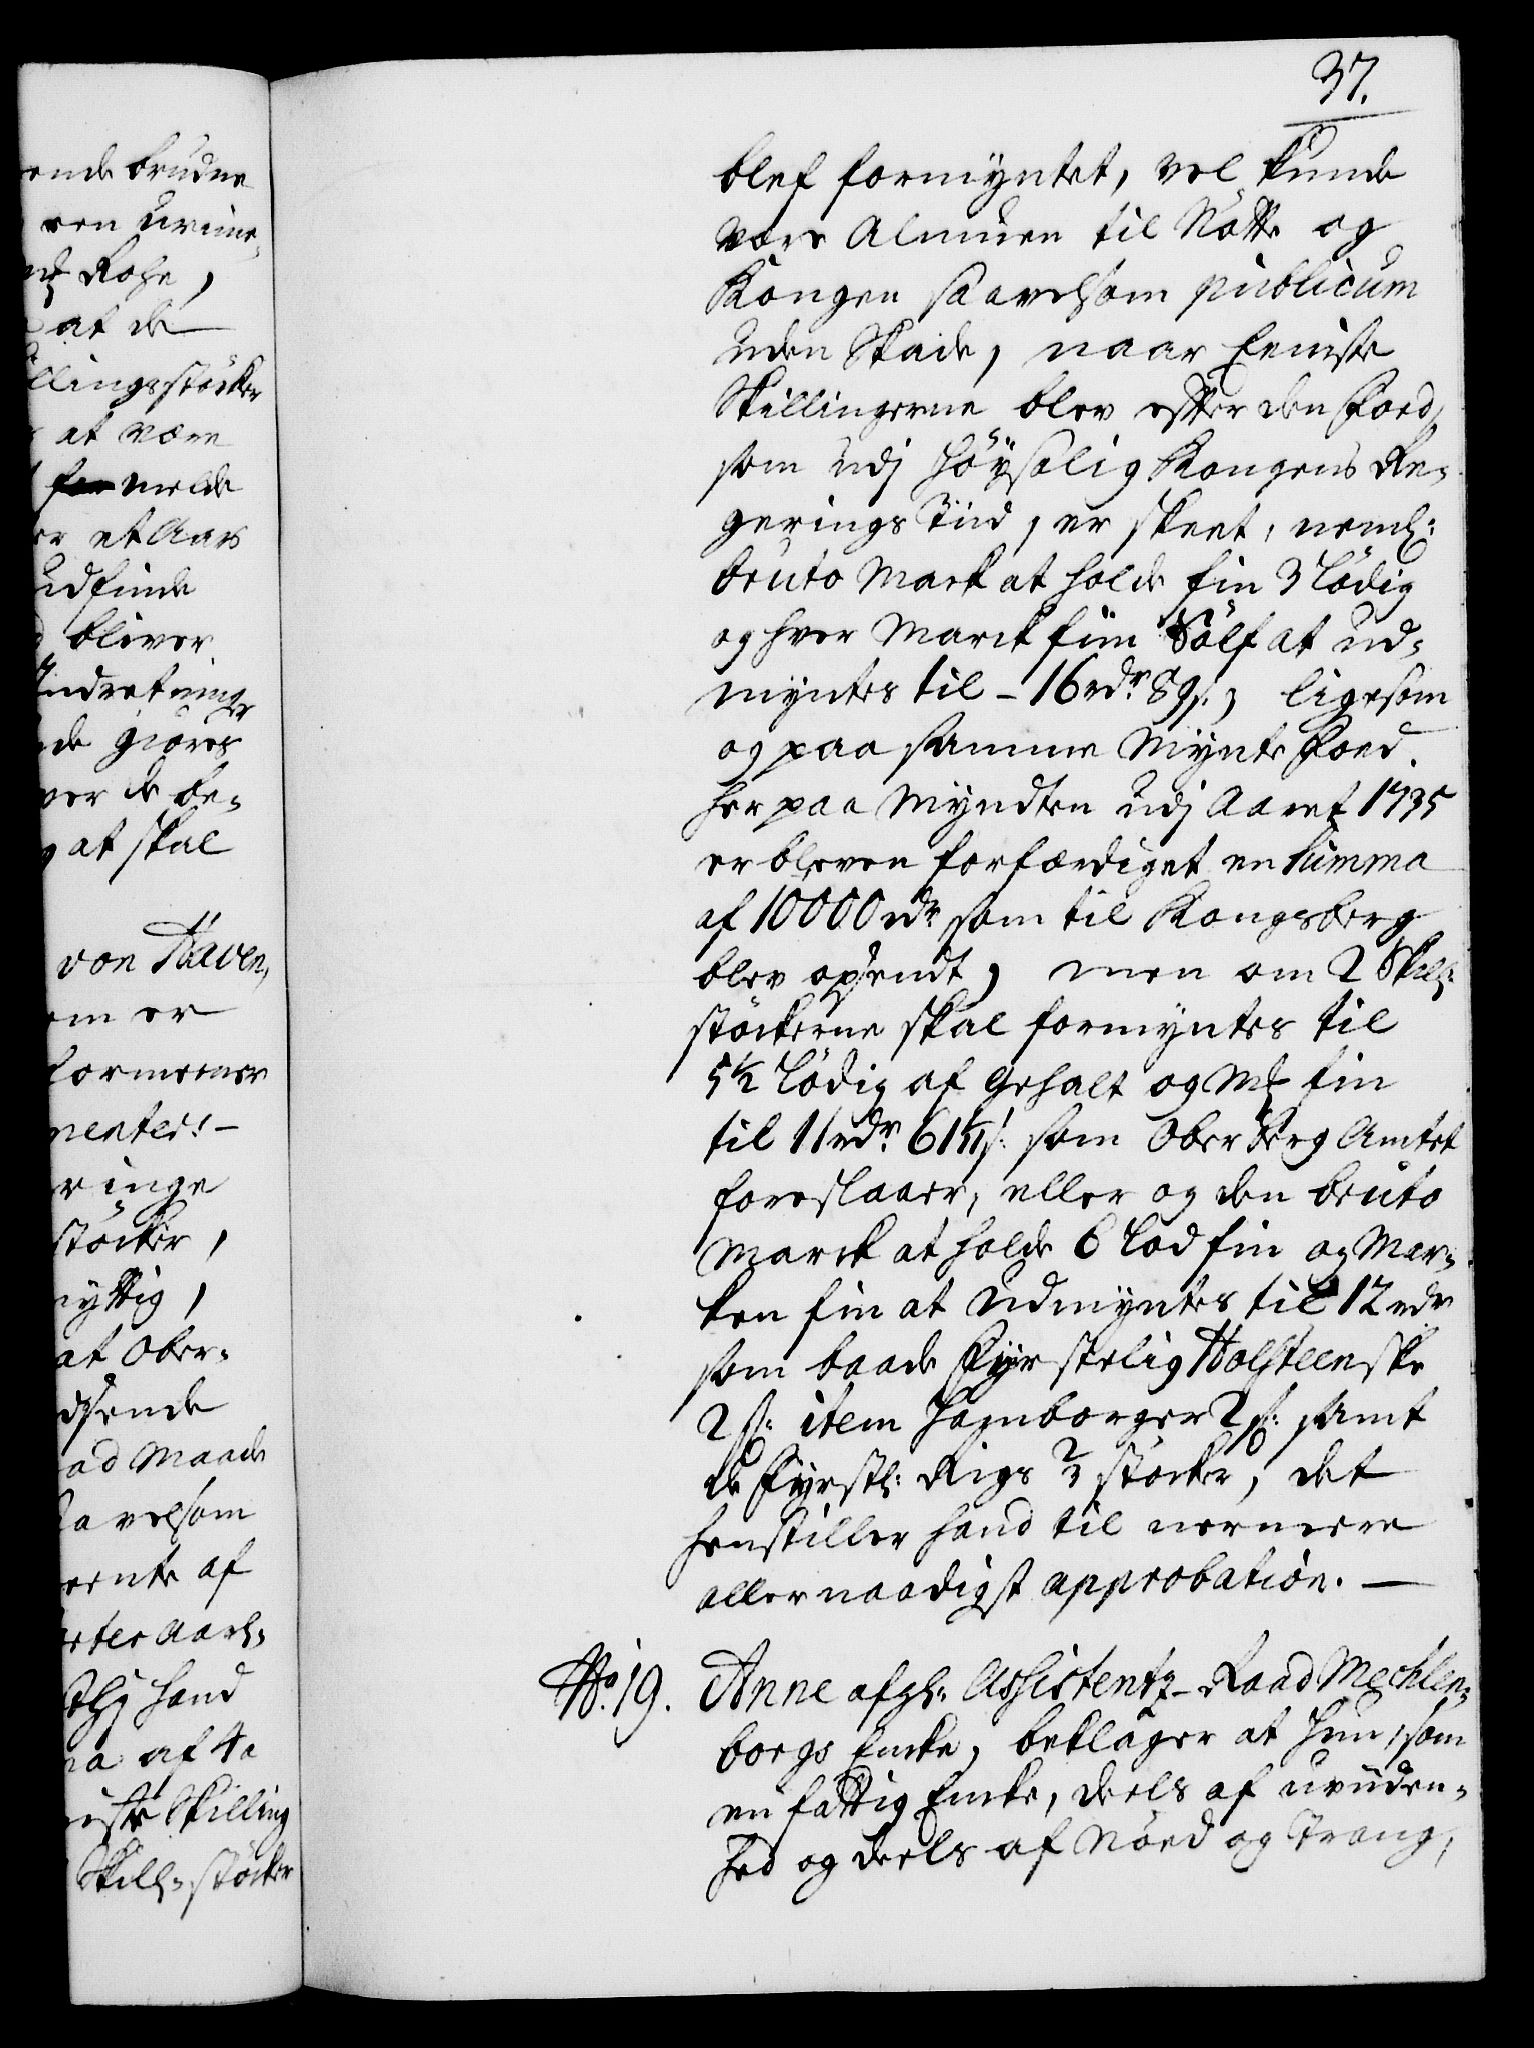 37.
blef formyntet, vel kunde
være Almuen til Nøtte og
Kongen saavelsom publicum
uden Skade, naar Eeniste
Skillingerne blev efter den Foed,
som udj höysalig Kongens Re¬
gerings Tiid, er skeet, neml:
bruto Mark at holde fin 3 Lödig
og hver Marck fiin Sölf at ud¬
myntes til - 16 rdr 89 s:, ligesom
og paa samme Mynte Foed.
her paa Myndten udj Aaret 1735
er bleven forfærdiget en Summa
af 10000 rdr som til Kongsberg
blev opsendt, men om 2 Skill:
stöckerne skal formyntes til
5½ Lödig af Gehalt og Mk fin
til 11 rdr 61 1/11 s: som Ober Berg Amtet
foreslaaer, eller og den bruto
Marck at holde 6 Lod fin og Mar¬
ken fin at udmyntes til 12 rdr
som baade Fyrstelig Holsteenske
2 s: item Hamborger 2 s: samt
de Fyrstl: Rigs 2/3 stöcker, det
henstiller hand til nermere
allernaadigst approbation. —
No. 19. Anne afgl: Assistentz-Raad Mechlen¬
borgs Encke, beklager at hun, som
en fattig Encke, deels af uviiden¬
hed og deels af Nöed og Trang,
ende brudne
at de
llingsstöcker
at være
melde
er et Aars
udfinde
bliver
Indretninge
de giöres
ver de be¬
at skal
von Haven,
em er
formeener
menter:-
ringe
stöcker,
nyttig,
at Ober¬
dsende
ad Maade
saavelsom
eente af
hand
na af 4a
niste Skilling
Skill: stöcker